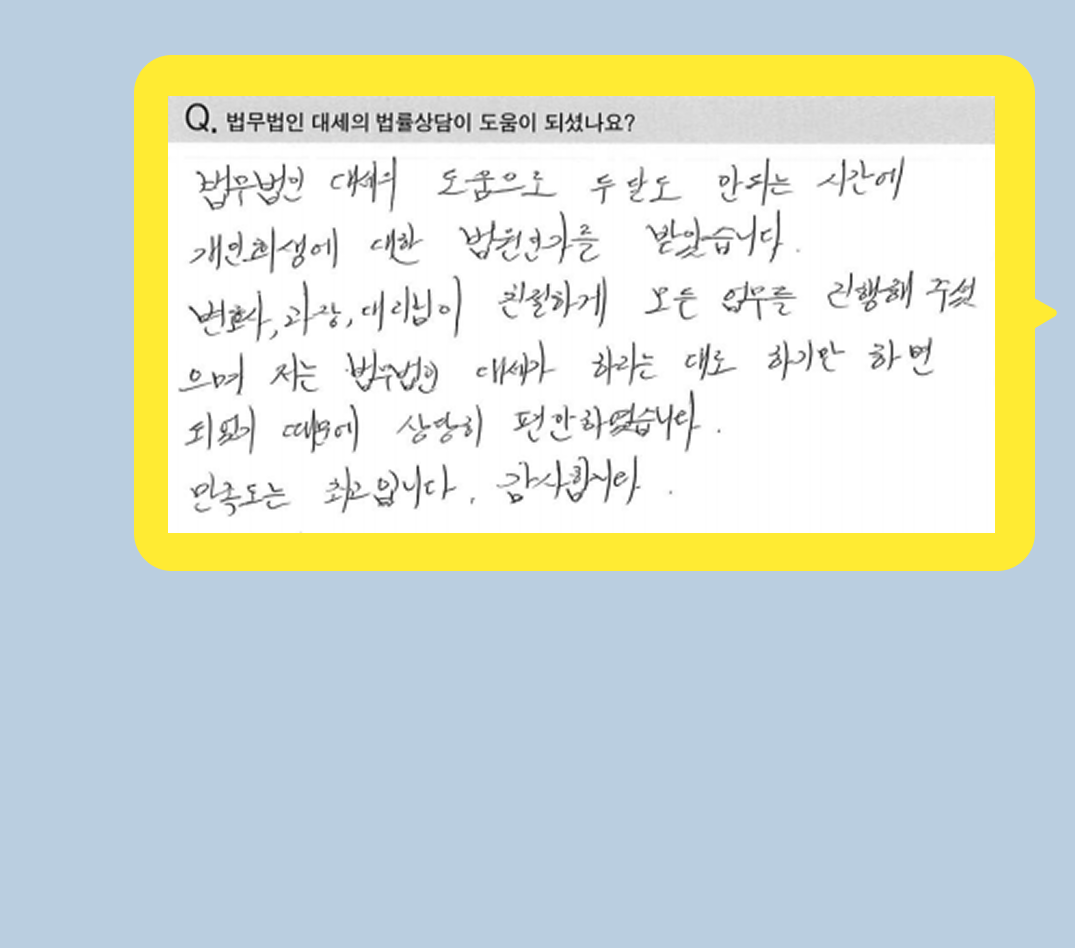 Q. 법무법인 대세의 법률상담이 도움이 되셨나요?
법무법인 대세의 도움으로 두달도 안되는 시간에
개인회생에 대한 법원인가를 받았습니다.
변호사, 과장, 대리님이 친절하게 모든 업무를 진행해 주셨
으며 저는 법무법인 대세가 하라는 대로 하기만 하면
되었기 때문에 상당히 편안하였습니다.
만족도는 최고입니다. 감사합니다.